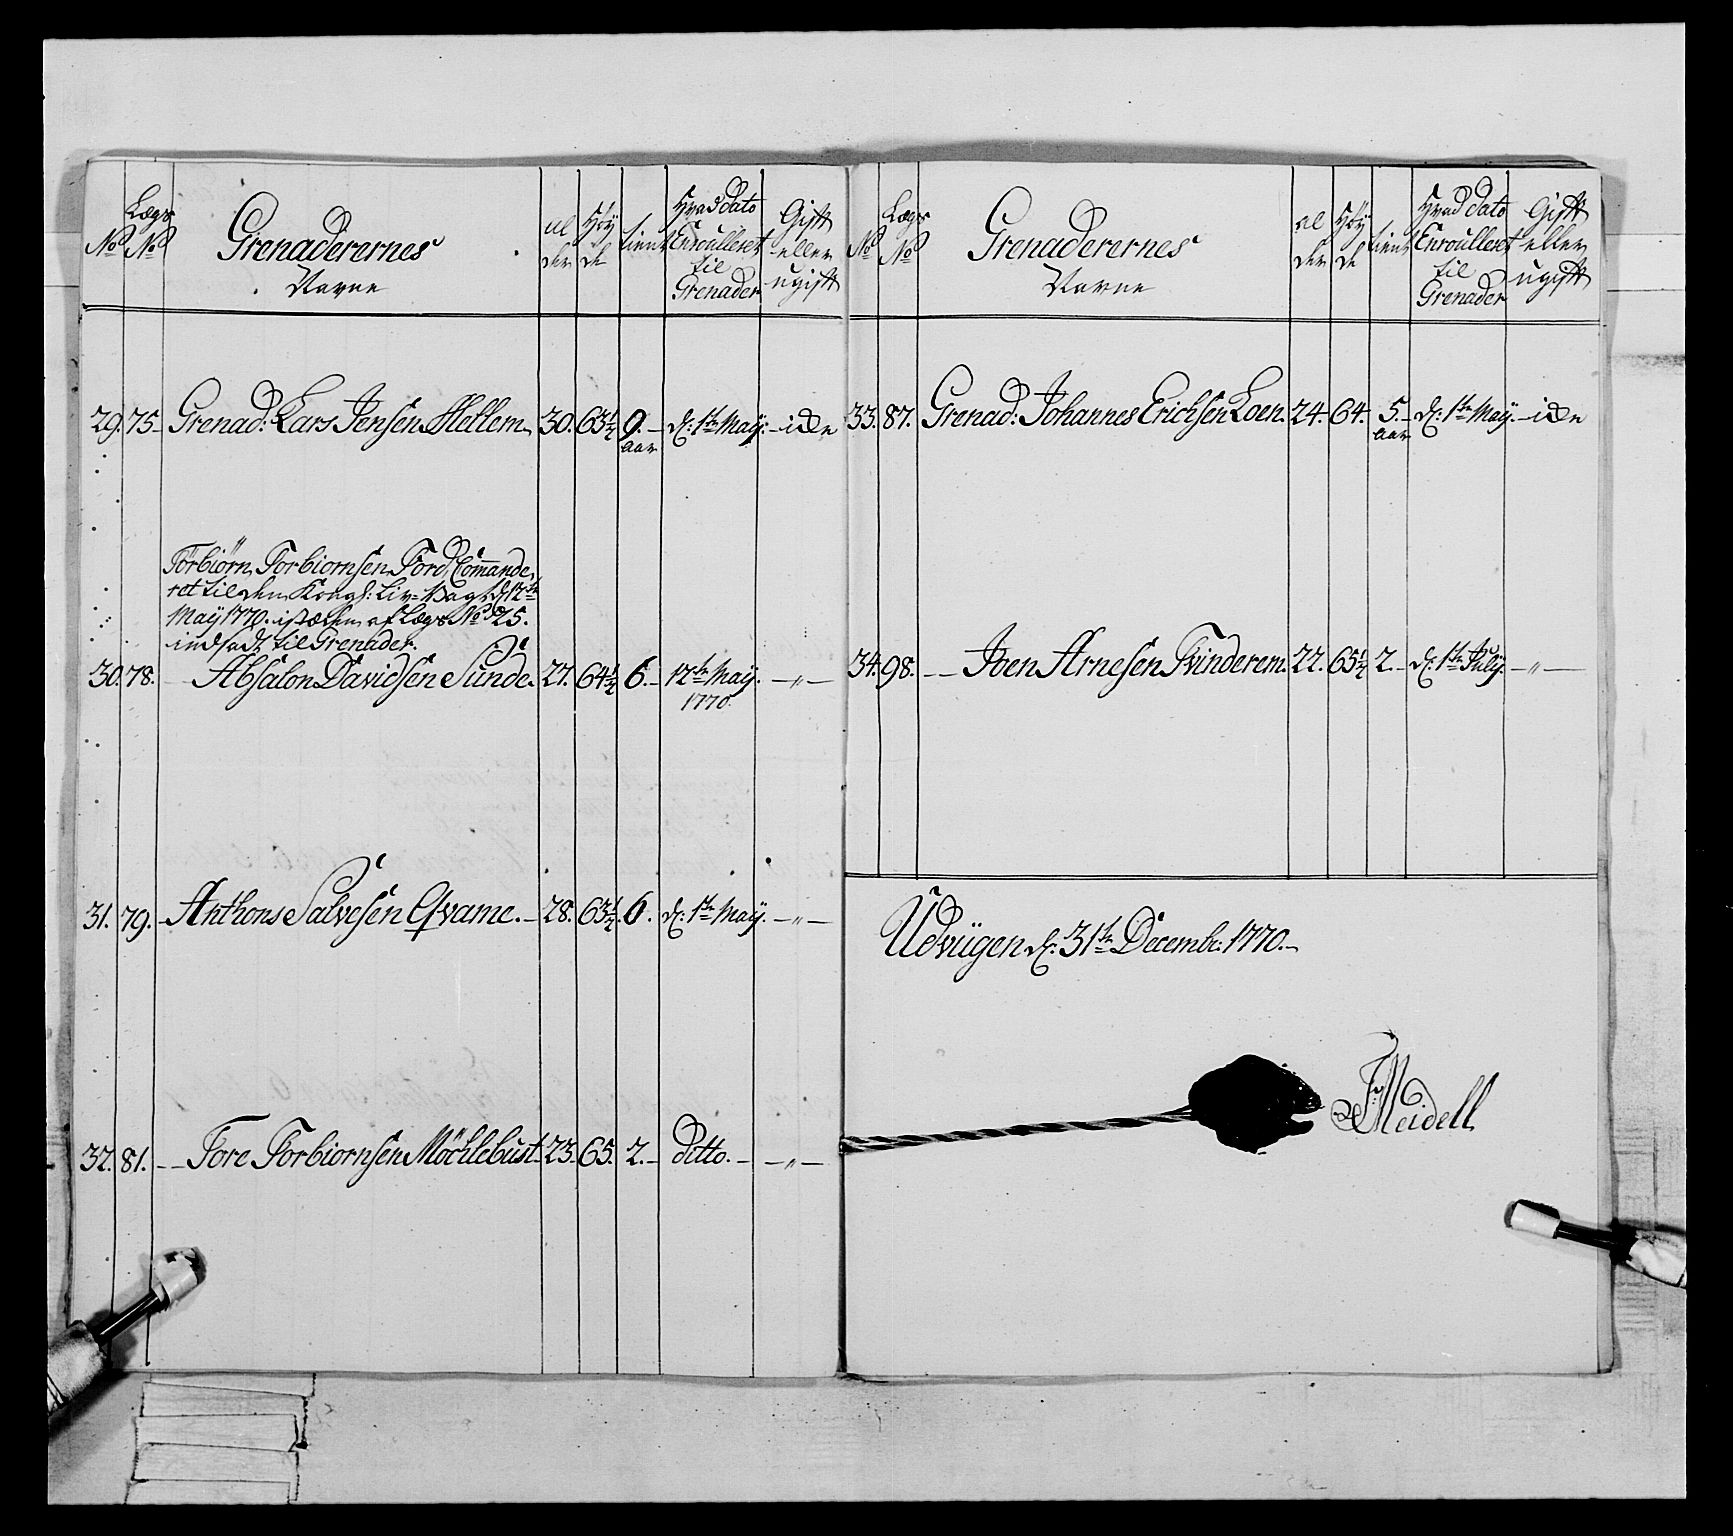 No
Lægs No
Grenaderernes
Navne
al
der
Høÿ
de
tient
Hvad dato
Enroulleret
til
Grenader
Gift
eller
ugift
29. 75. Grenad: Lars Jensen Hellem 30. 63½ 9. aar d: 1te Maÿ.
Törbiörn Torbiornsen Ford, Commande,
ret til den Kongl: Liv-Vagt d: 12te
Maÿ 1770. isteden af Lægs No 25.
indsadt til Grenader.
30. 78. — Absalon Davidsen Sunde. 27. 64½ 6. — 12te Maÿ. 1770. — „ —
31. 79. Anthons Salvesen Qvame. — 28. 63½ 6. d: 1te Maÿ. — „ —
32. 81. — — Tore Torbiornsen Möchlebust 23. 65. 2. — ditto. — — „ —
No
Lægs No
Grenaderernes
Navne
al
der
Høÿ
de
tient
Hvad dato
Enroulleret
til
Grenader
Gift
eller
ugift
33. 87. Grenad: Johannes Erichsen Loen. 24. 64. 5. — aar d: 1te Maÿ.
34. 98. — — Joen Arnesen Tvinderem. 22. 65½ 2. — d: 1te Julÿ. — „ —
Udvÿgen d: 31te Decembr: 1770. —
Meidell